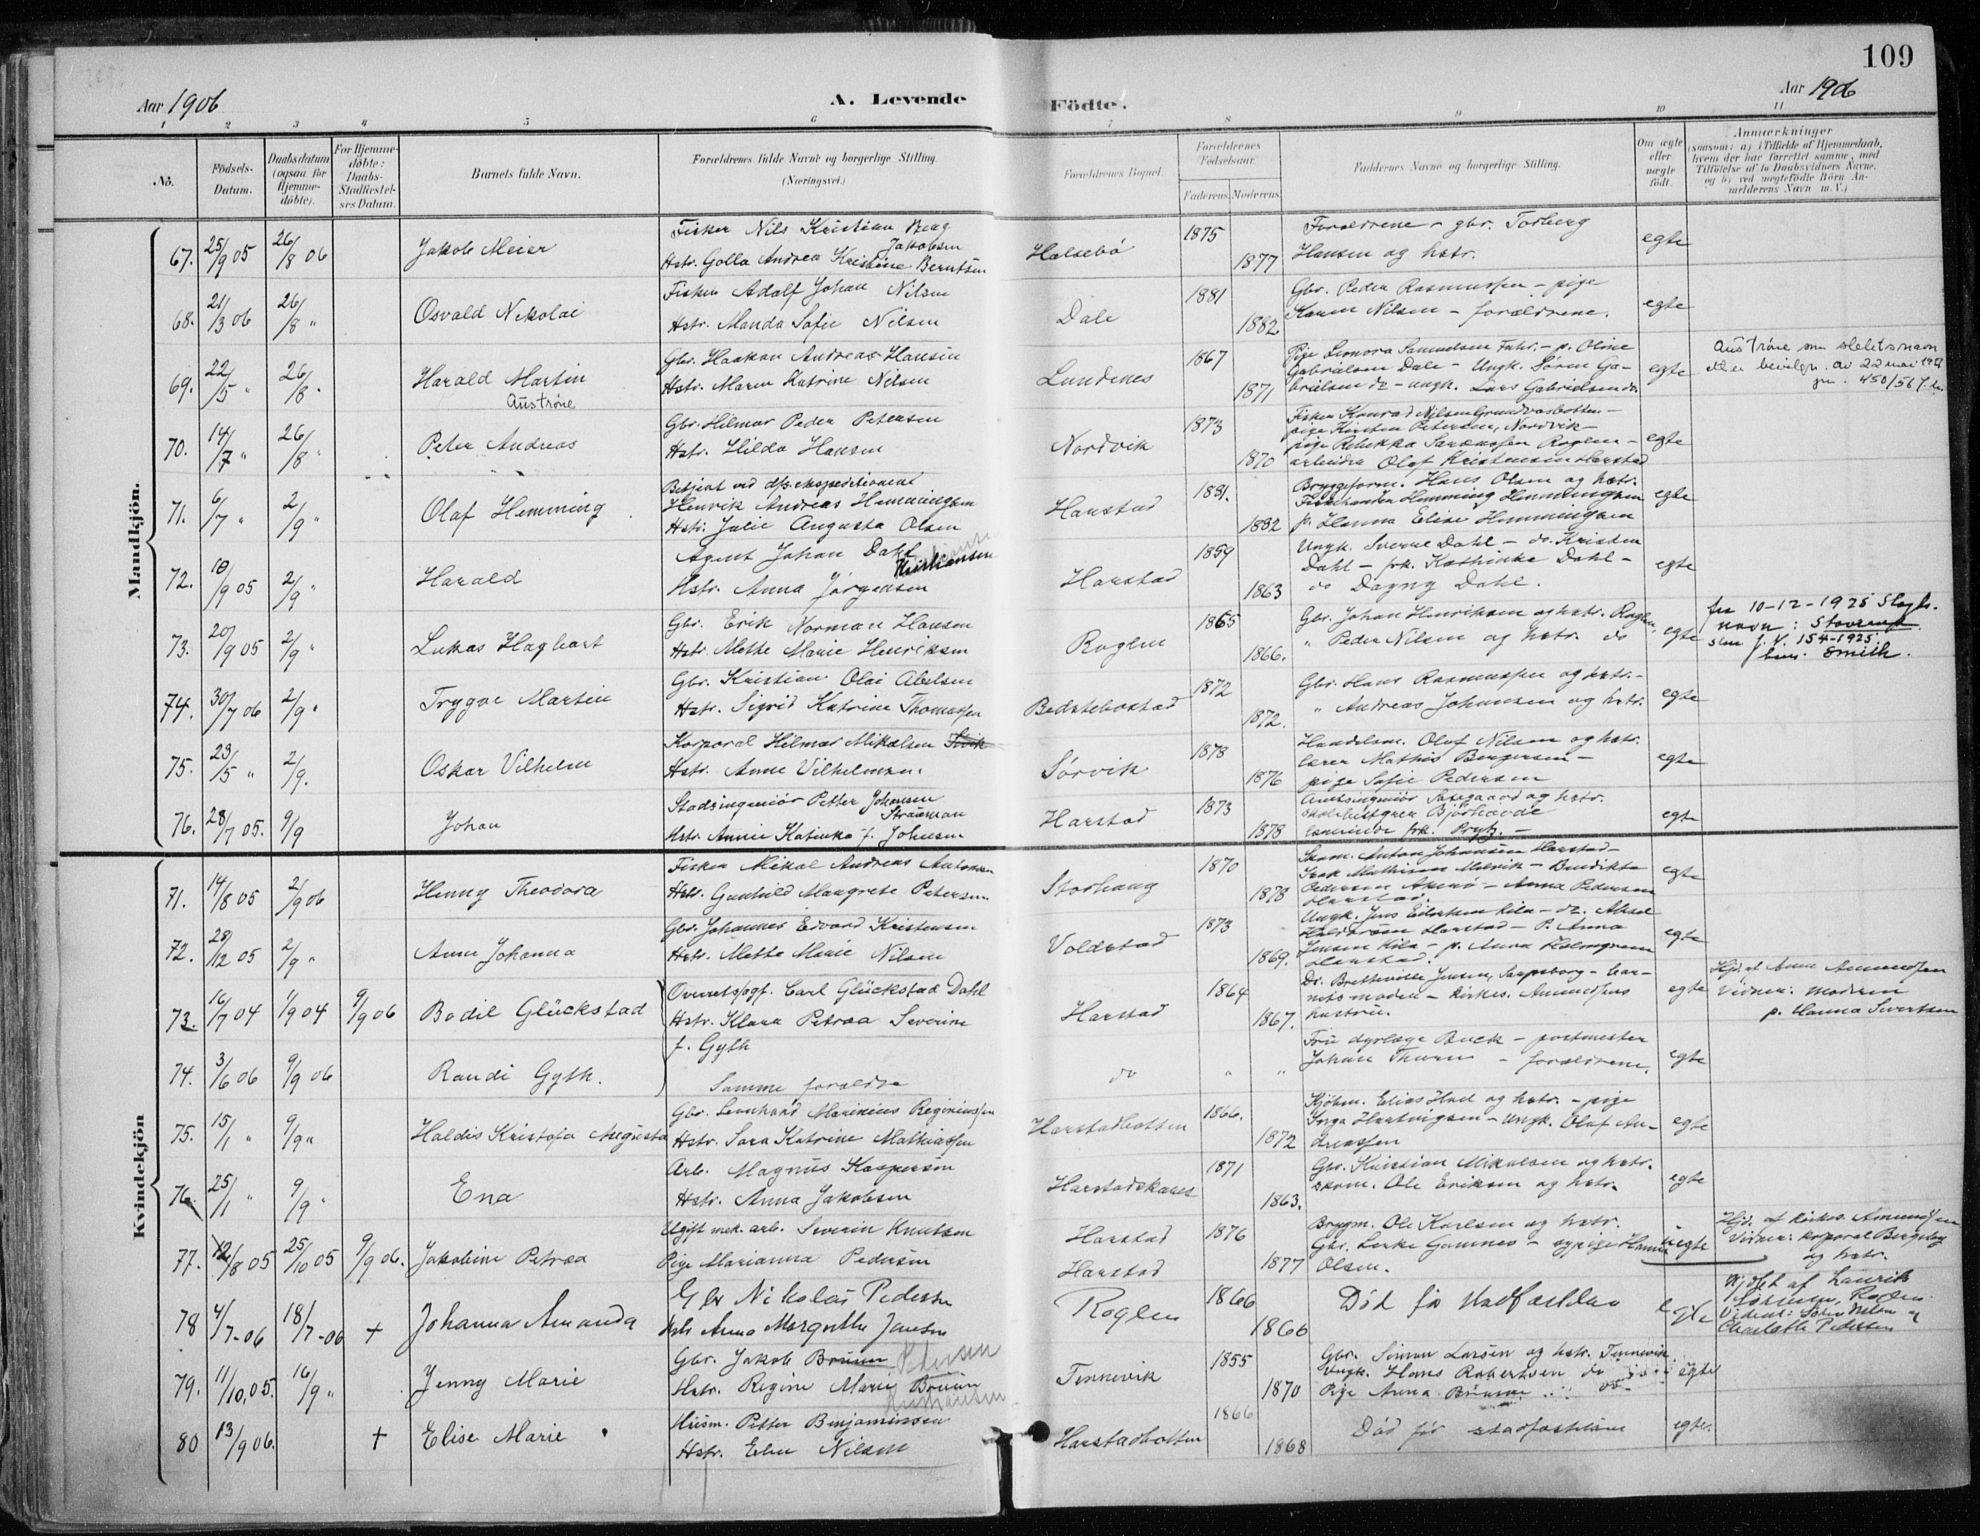 109
Aar 1906
A. Levende
Födte.
Aar 1906
1 2 3 4 5 6 7 8 9 10 11
No.
Födsels-Datum.
Daabsdatum (ogsaa for Hjemme-döbte).
For Hjemme-döbte: Daabs-Stadfæstel-ses Datum.
Barnets fulde Navn.
Forældrenes fulde Navne og borgerlige Stilling.
(Næringsvei.)
Forældrenes Bopæl.
Forældrenes Födselsaar.
Faderens. Moderens.
Faddernes Navne og borgerlige Stilling.
Om ægte eller uægte födt.
Anmærkninger
(saasom: a) i Tilfælde af Hjemmedaab, hvem der har forrettet samme, med Tilföielse af to Daabsvidners Navne, og b) ved uægtefödte Börn An-melderens Navn m. V.)
Mandkjön.
67. 25/9 05 26/8 06 Jakob Meier
Fisker Nils Kristian Berg Jakobsen
Hstr. Golla Andrea Kristine Berntsen
Halsebö 1875 1877
Forældrene – gbr. Torberg
Hansen og hstr.
egte
68. 21/3 06 26/8 " Osvald Nikolai
Fisker Adolf Johan Nilsen
Hstr. Manda Sofie Nilsen
Dale 1881 1882
Gbr. Peder Rasmussen – pige
Karen Nilsen – forældrene.
egte
69. 22/5 " 26/8 " Harald Martin
Auströne
Gbr. Haakon Andreas Hansen
Hstr. Maren Katrine Nilsen
Lundenes 1867 1871
Pige Leonora Samuelsen – p. Oline
Gabrielsen Dale – Ungk. Sören Ga-
brielsen do – ungk. Lars Gabrielsen do
egte
Auströne som slektsnavn
av 22 mai
450/567
70. 14/7 " 26/8 " Peter Andreas
Gbr. Hilmar Peder Petersen
Hstr. Hilda Hansen
Nordvik 1873 1870
Fisker Konrad Nilsen
pige Kirsten Petersen, Nordvik –
pige Rebekka Roglen –
arbeider Olaf Kristensen Harstad
egte
71. 6/7 " 2/9 " Olaf Hemming
Betjent ved dps. ekspeditionen
Henrik Andreas Hemmingsen
Hstr. Julie Augusta Olsen
Harstad 1881. 1882
Bryggeform. Hans Olsen og hstr.
Hemming Hemmingsen
p. Hanna Elise Hemmingsen
egte
72. 10/9 05 2/9 " Harald
Agent Johan Dahl Kristiansen
Hstr. Anna Jörgensen
Harstad 1859 1863
Ungk. Sverre Dahl – do. Kristen
Dahl – frk. Kathinke Dahl –
do Dagny Dahl.
egte
73. 20/9 05 2/9 " Lukas Hagbart
Gbr. Erik Norman Hansen
Hstr. Mette Marie Henriksen
Roglen 1865 1866.
Gbr. Johan Henriksen og hstr. Roglen
" Peder Nilsen og hstr. do
egte
fra 10-12-1925 Slegts-
navn: Stoveren
154-1925.
Smith.
74. 30/7 06 2/9 " Trygve Martin
Gbr. Kristian Olai Abelsen
Hstr. Sigrid Katrine Thomassen
Bedstebostad 1872 1872.
Gbr. Hans Rasmussen og hstr. –
" Andreas Johansen og hstr.
egte
75. 23/5 " 2/9. Oskar Vilhelm
Korporal Hilmar Mikalsen
Hstr. Anne Vilhelmsen
Sörvik 1878 1876
Handelsm. Olaf Nilsen og hstr.
lærer Mathis Bergersen –
pige Sofie Pedersen
egte
76. 28/7 05. 9/9 Johan
Stadsingeniör Petter Johnsen Straamann
Hstr. Annie Katinka f. Johnsen
Harstad 1873 1878
Amtsingeniör og hstr.
frk. –
egte
Kvindekjön
71. 14/8 05 2/9 06 Henny Theodora
Fisker Mikal Andreas Antonsen
Hstr. Gunhild Margrete Petersen
Storhaug 1870 1878
Skom. Anton Johansen Harstad –
Isak Mathisen – Benedikte
Pedersen – Anna Pedersen
Harstad.
egte
72. 28/12 05 2/9 " Anne Johanna
Gbr. Johannes Edvard Kristensen
Hstr. Mette Marie Nilsen
Voldstad 1873 1869.
Ungk. Jens Eilertsen Kila – do. Aksel
Harstad – P. Anna
Jensen Kila – p. Anna Holmgren
Harstad.
egte
73. 16/7 04 1/9 04 9/9 06 Bodil Glückstad
Overretssagf. Carl Glückstad Dahl
Hstr. Klara Petrea Severine
f. Gyth
Harstad 1864 1867.
Dr. Jensen, Sarpsborg – Bar-
nets moder – Kirkes. Amundsens
hustru.
egte
Hjd. af Anna Amundsen
Vidner: moderen
p. Hanna Sivertsen
74. 3/6 06 9/9 06 Randi Gyth.
Samme forældre
do " "
Fru dyrlæge Buck – postmester
Johan Thurn – forældrene.
egte
75. 15/1 " 9/9 " Haldis Kristofa Augusta
Gbr. Leonhard Marinius Reginiussen
Hstr. Sara Katrine Mathiassen
Harstadbotten 1866. 1872
Kjöbm. Elias Hud og hstr. – pige
Inga Hartvigsen – Ungk. Olaf An-
dreassen
egte
76. 25/1 " 9/9 " Ena
Arb. Magnus Kaspersen
Hstr. Anna Jakobsen
Harstadskaret 1871 1863.
Gbr. Kristian Mikalsen og hstr.
skom. Ole Eriksen og hstr.
egte
77. 12/8 05 25/10 05 9/9 06. Jakobine Petrea
Ugift mek. arb. Severin Knutsen
Pige Marianna Pedersen
Harstad
Harstad
1876 1877
Brygm. Ole Karlsen og hstr.
Gbr. Gamnes – sypige Hanna
Olsen.
uegte
Hjd. af kirkes. Amundsen
Vidner: korporal Bergesen
og hstr.
78 4/7-06 18/7-06 + Johanna Amanda
Gbr Nikolai Pedersen
Hstr Anna Margrethe Jensen
Roglen 1866 1866
Död før stadfæstelse
egte
Hjdbt af Laurits
Sörensen, Roglen.
Vidner: Sören Nilsen og
Charlotte Pedersen
79. 11/10, 05. 16/9 " Jenny Marie
Gbr. Jakob Bruun Pedersen
Hstr. Regine Marie Bruun
Kristiansen
Tennevik 1855 1870
Gbr. Simon Larsen og hstr. Tennevik
Ungk. Hans Robertsen do
Pige Anna Bruun do
egte
80 13/9 06. + Elise Marie
Husm. Petter Benjaminsen
Hstr. Elen Nilsen
Harstadbotten 1866 1868
Död før stadfæstelsen
egte.